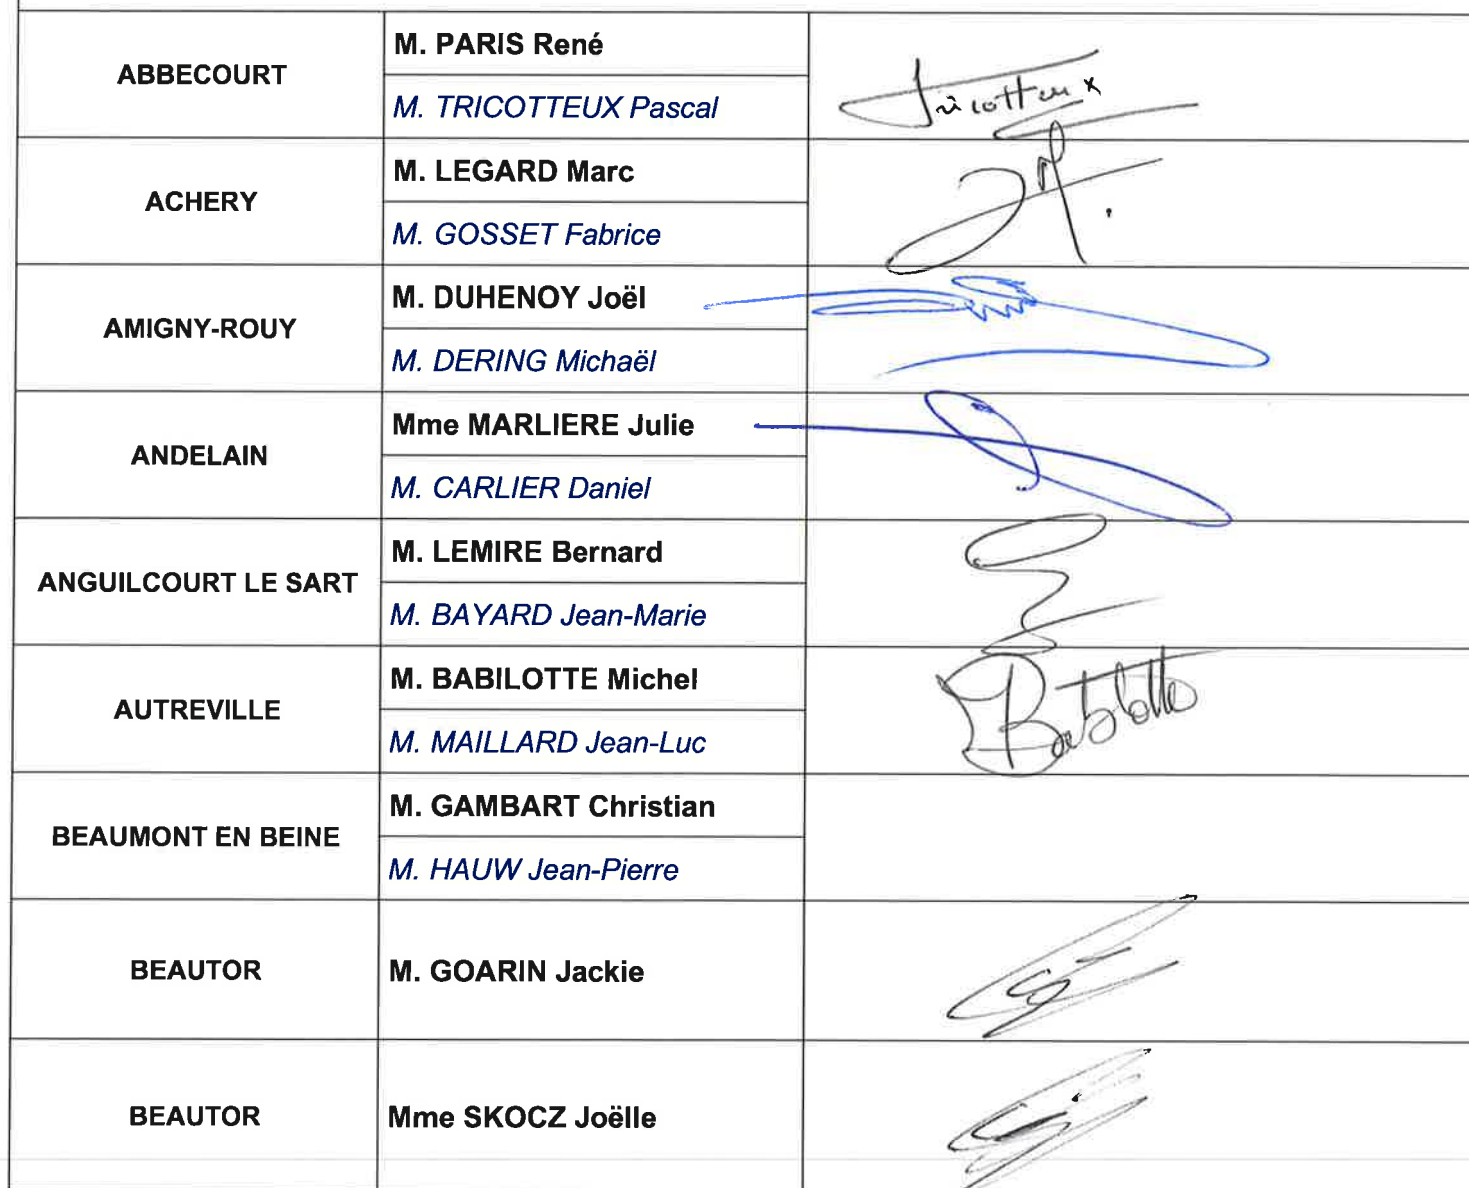 ABBECOURT
M. PARIS René
M. TRICOTTEUX Pascal
Tricotteux
ACHERY
M. LEGARD Marc
M. GOSSET Fabrice
AMIGNY-ROUY
M. DUHENOY Joël
M. DERING Michaël
ANDELAIN
Mme MARLIERE Julie
M. CARLIER Daniel
ANGUILCOURT LE SART
M. LEMIRE Bernard
M. BAYARD Jean-Marie
AUTREVILLE
M. BABILOTTE Michel
M. MAILLARD Jean-Luc
Babilotte
BEAUMONT EN BEINE
M. GAMBART Christian
M. HAUW Jean-Pierre
BEAUTOR
M. GOARIN Jackie
BEAUTOR
Mme SKOCZ Joëlle